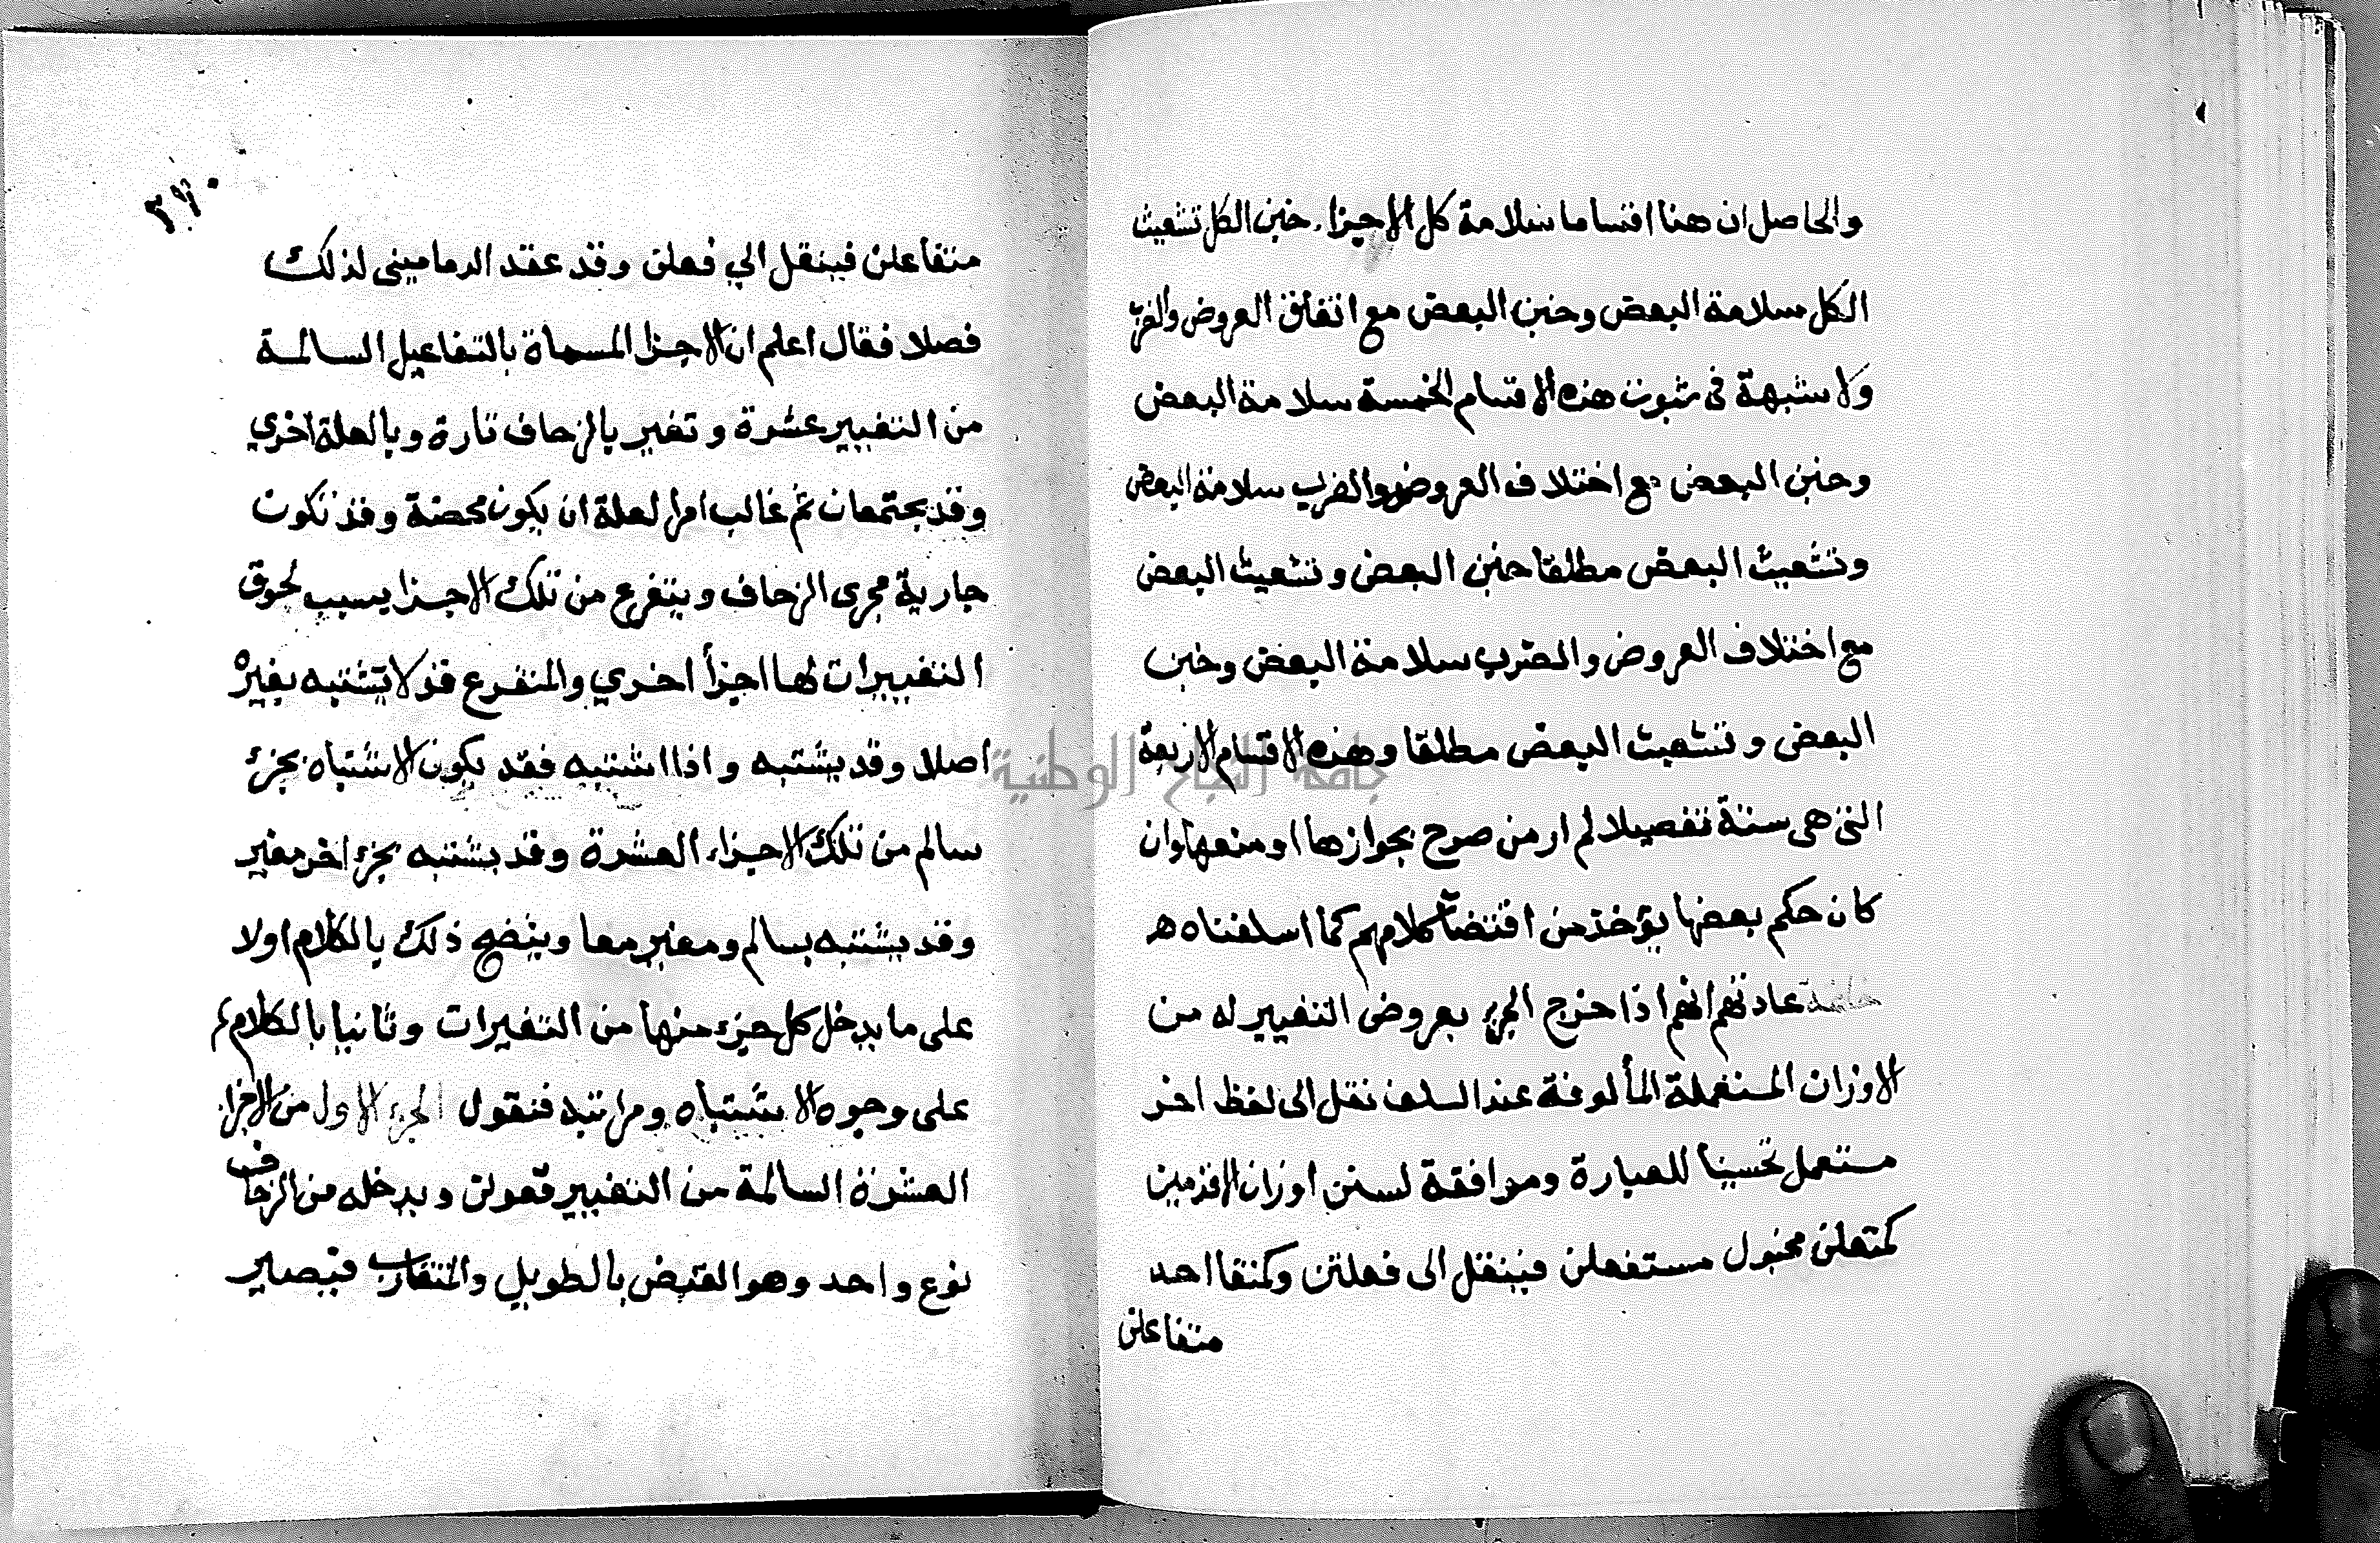 والحاصل ان هنا اقساما سلامة كل الاجزاء خبن الكل تشعيث
الكل سلامة البعض وخبن البعض مع اتفاق العروض والضرب
ولا شبهة في ثبوت هذه الاقسام الخمسة سلامة البعض
وخبن البعض مع اختلاف العروض والضرب سلامة البعض
وتشعيث البعض مطلقا خبن البعض وتشعيث البعض
مع اختلاف العروض والضرب سلامة البعض وخبن
البعض وتشعيث البعض مطلقا وهذه الاقسام الاربعة
التي هي ستة تفصيلا لم ار من صرح بجوازها او منعها وان
كان حكم بعضها يؤخذ من اقتضآ كلامهم كما اسلفناه هـ
عادتهم انهم اذا خرج الجزء بعروض التغيير له من
الاوزان المستعملة المألوفة عند السلف نقل الى لفظ اخر
مستعمل تحسينا للعبارة وموافقة لسنن اوزان الاقدمين
كمتعلن مخبول مستفعلن فينقل الى فعلتن وكمتفا احد
متفاعلن
٢٧٠
متفاعلن فينقل الي فعلن وقد عقد الدماميني لذلك
فصلا فقال اعلم ان الاجزا المسماة بالتفاعيل السالمة
من التغيير عشرة وتغير بالزحاف تارة وبالعلة اخري
وقد يجتمعان ثم غالب امر العلة ان يكون محضة وقد تكون
جارية مجرى الزحاف ويتفرع من تلك الاجزا بسبب لحوق
التغييرات لها اجزأ اخري والمتفرع قد لا يشتبه بغيره
اصلا وقد يشتبه واذا اشتبه فقد يكون الاشتباه بجزء
سالم من تلك الاجزاء العشرة وقد يشتبه بجزء اخر مغير
وقد يشتبه بسالم ومغير معا ويتضح ذلك بالكلام اولا
على ما يدخل كل جزء منها من التغيرات وثانيا بالكلام
على وجوه الاشتباه ومراتبه فنقول الجزء الاول من الاجزاء
العشرة السالمة من التغيير فعولن ويدخله من الزحاف
نوع واحد وهو القبض بالطويل والمتقارب فيصير
جامعة النجاح الوطنية